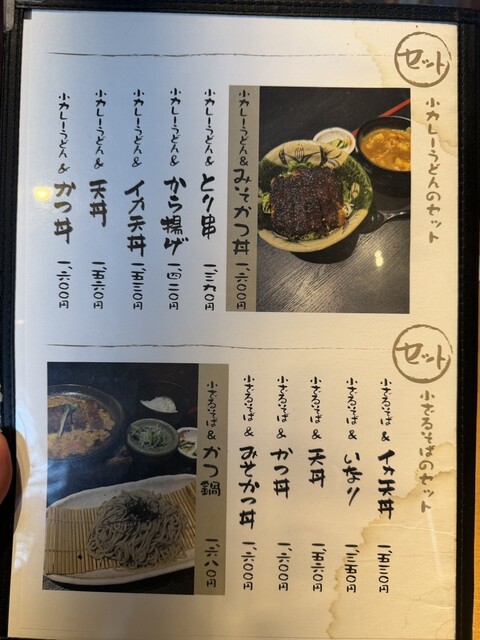 セット
小カレーうどんのセット
小カレーうどん&みそかつ丼 一、六〇〇円
小カレーうどん&とり串 一、三九〇円
小カレーうどん&から揚げ 一、四二〇円
小カレーうどん&イカ天丼 一、五三〇円
小カレーうどん&天丼 一、五六〇円
小カレーうどん&かつ丼 一、六〇〇円
セット
小ざるそばのセット
小ざるそば&イカ天丼 一、五三〇円
小ざるそば&いなり 一、三五〇円
小ざるそば&天丼 一、五六〇円
小ざるそば&かつ丼 一、六〇〇円
小ざるそば&みそかつ丼 一、六〇〇円
小ざるそば&かつ鍋 一、六八〇円